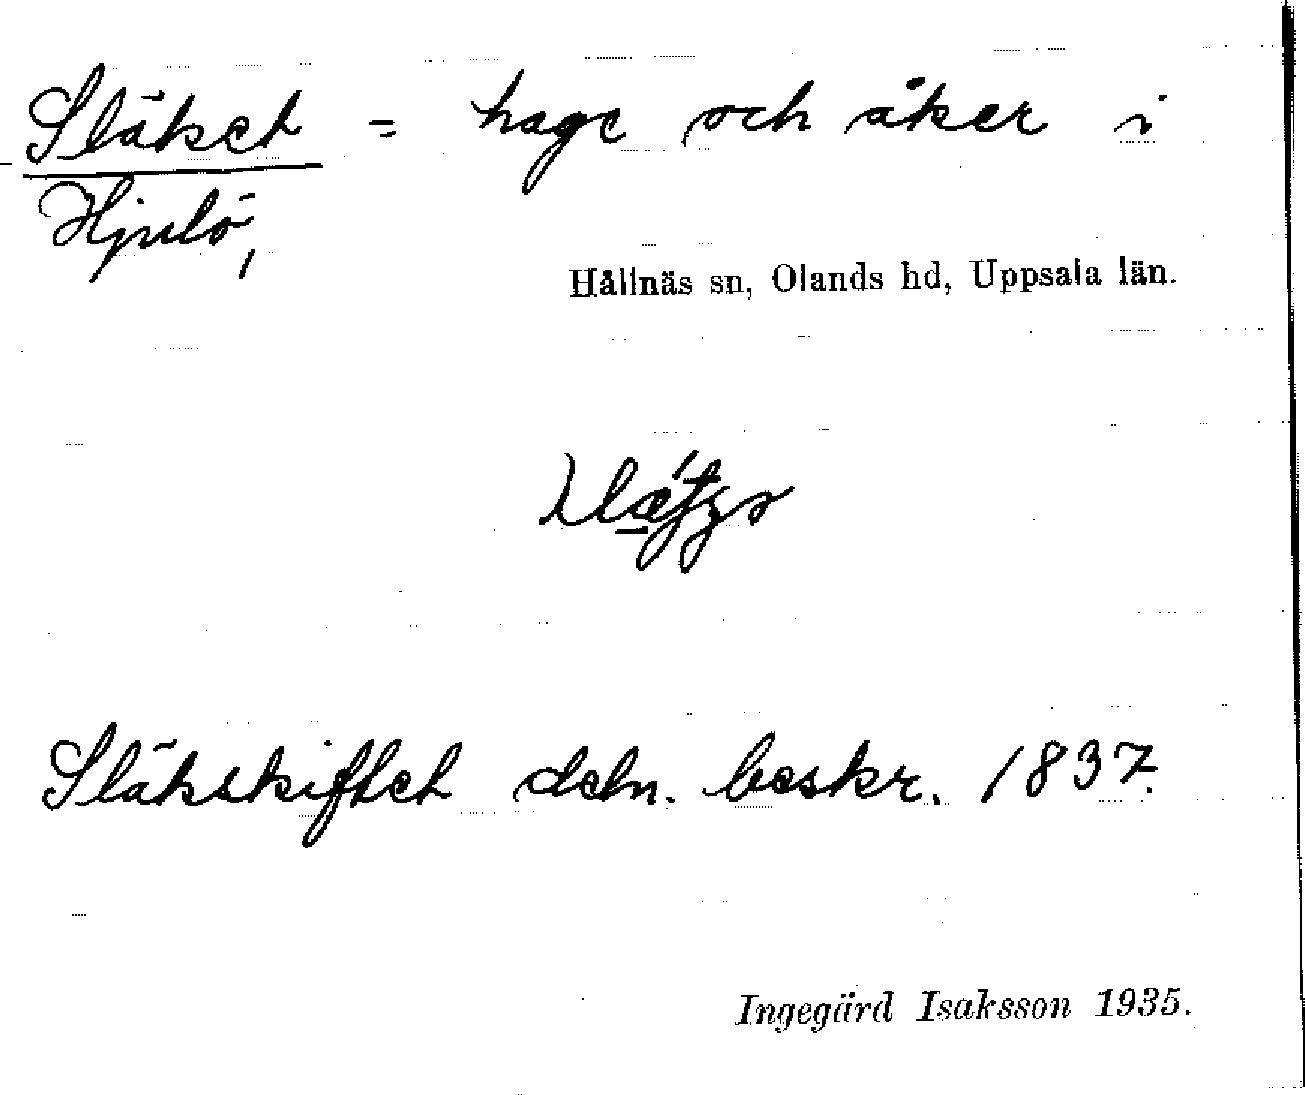 Släkset = hage och åker i
Hjulö,
Hållnäs sn, Olands hd, Uppsala län.
Släkskiftet deln. beskr. 1837.
Ingegärd Isaksson 1935.